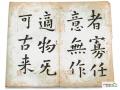 者寡任
意無作
適物无
可古来